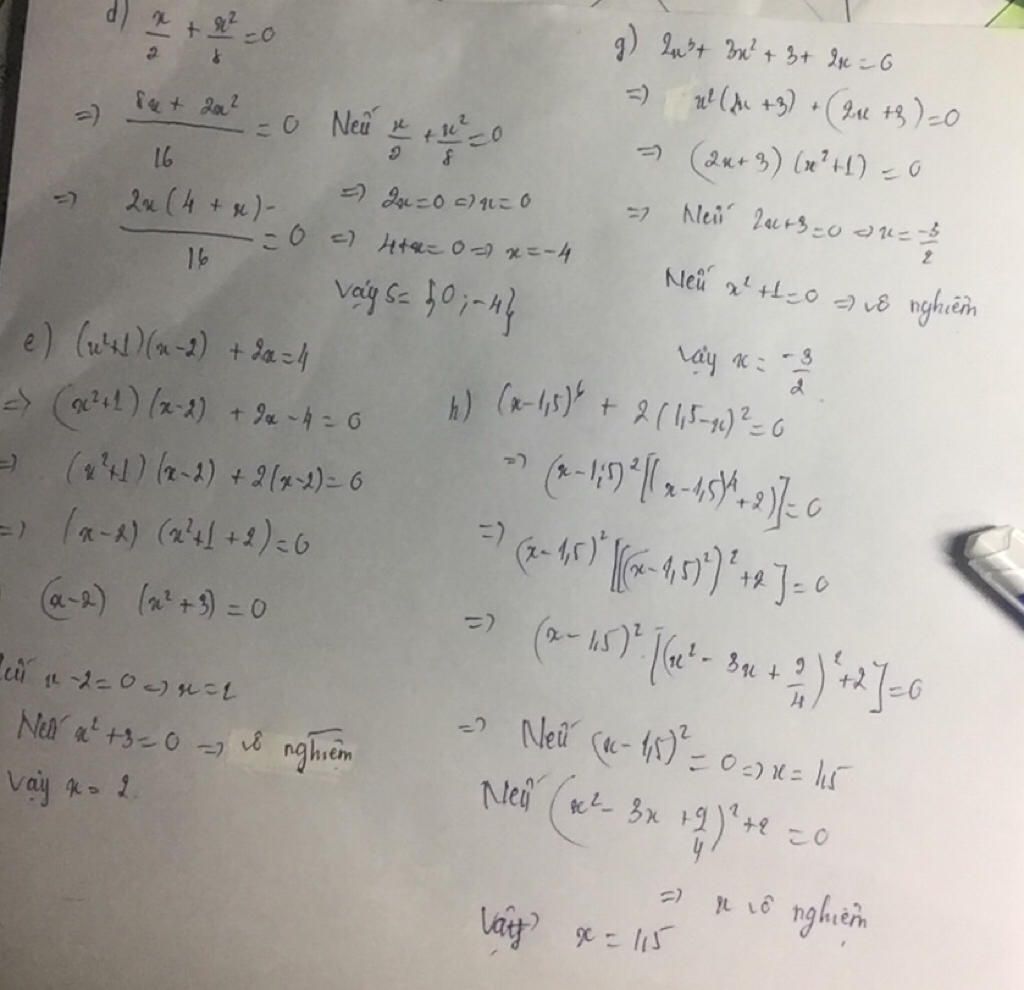 d) x/2 + x²/8 = 0
=> (8x + 2x²)/16 = 0
=> 2x(4 + x)/16 = 0
Nếu x/2 + x²/8 = 0
=> 2x = 0 => x = 0
=> 4+x = 0 => x = -4
Vậy S = {0; -4}
e) (x²+1)(x-2) + 2x = 4
=> (x²+1)(x-2) + 2x - 4 = 0
=> (x²+1)(x-2) + 2(x-2) = 0
=> (x-2)(x²+1+2) = 0
(x-2)(x²+3) = 0
Nếu x-2 = 0 => x = 2
Nếu x²+3 = 0 => vô nghiệm
Vậy x = 2.
g) 2x³ + 3x² + 3 + 2x = 0
=> x²(2x+3) + (2x+3) = 0
=> (2x+3)(x²+1) = 0
=> Nếu 2x+3 = 0 => x = -3/2
Nếu x²+1 = 0 => vô nghiệm
Vậy x = -3/2.
h) (x-1,5)⁶ + 2(1,5-x)² = 0
=> (x-1,5)²[(x-1,5)⁴+2)] = 0
=> (x-1,5)²[((x-1,5)²)²+2] = 0
=> (x-1,5)².[(x² - 3x + 9/4)²+2] = 0
=> Nếu (x-1,5)² = 0 => x = 1,5
Nếu (x² - 3x + 9/4)²+2 = 0
=> x vô nghiệm
Vậy x = 1,5